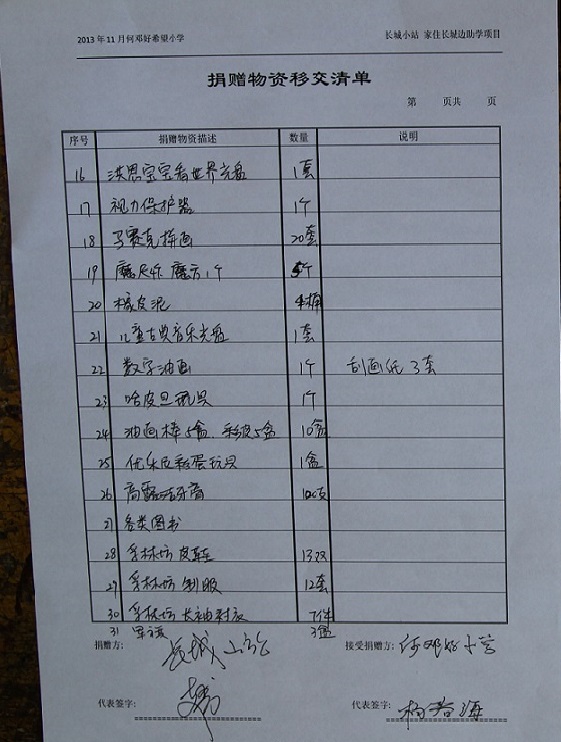 2013年11月何邓好希望小学 长城小站 家住长城边助学项目
捐赠物资移交清单
第 页共 页
序号 捐赠物资描述 数量 说明
16 洪恩宝宝看世界光盘 1套
17 视力保护器 1个
18 马赛克拼画 20套
19 魔尺 魔方1个 个
20 橡皮泥
21 儿童古典音乐光盘 1套
22 数字油画 1个 刮画纸 3套
23 哈皮豆玩具 1个
24 油画棒5盒、彩 5盒 10盒
25 优乐尼彩蛋玩具 1盒
26 高露洁牙膏 120支
27 各类图书
28 手林坊 皮鞋 13双
29 手林坊 制服 12套
30 手林坊 长袖衬衣 7件
31 军 3盒
捐赠方: 长城小站 接受捐赠方: 何邓好小学
代表签字: 代表签字: 杨春海